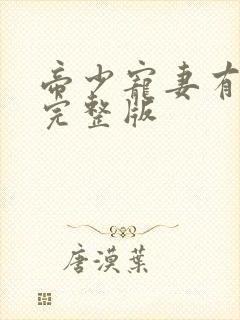 帝少寵妻有
完整版
唐漠葉